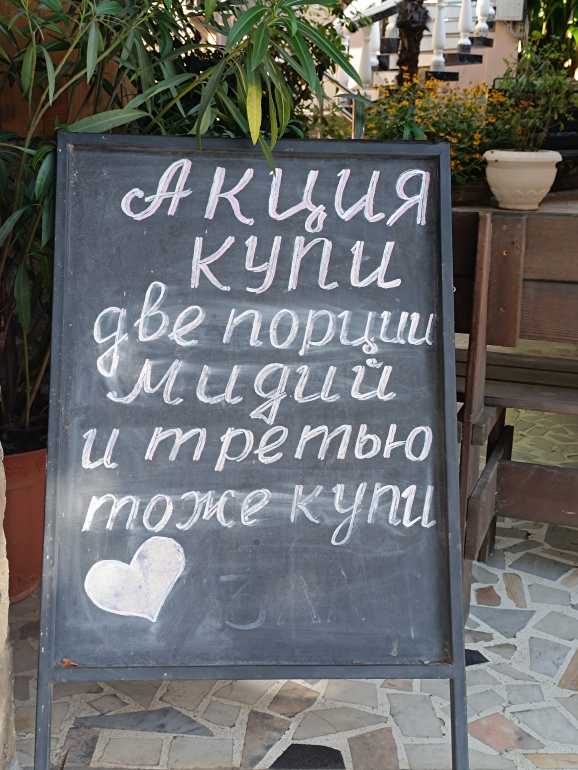 Акция
купи
две порции
мидий
и третью
тоже купи